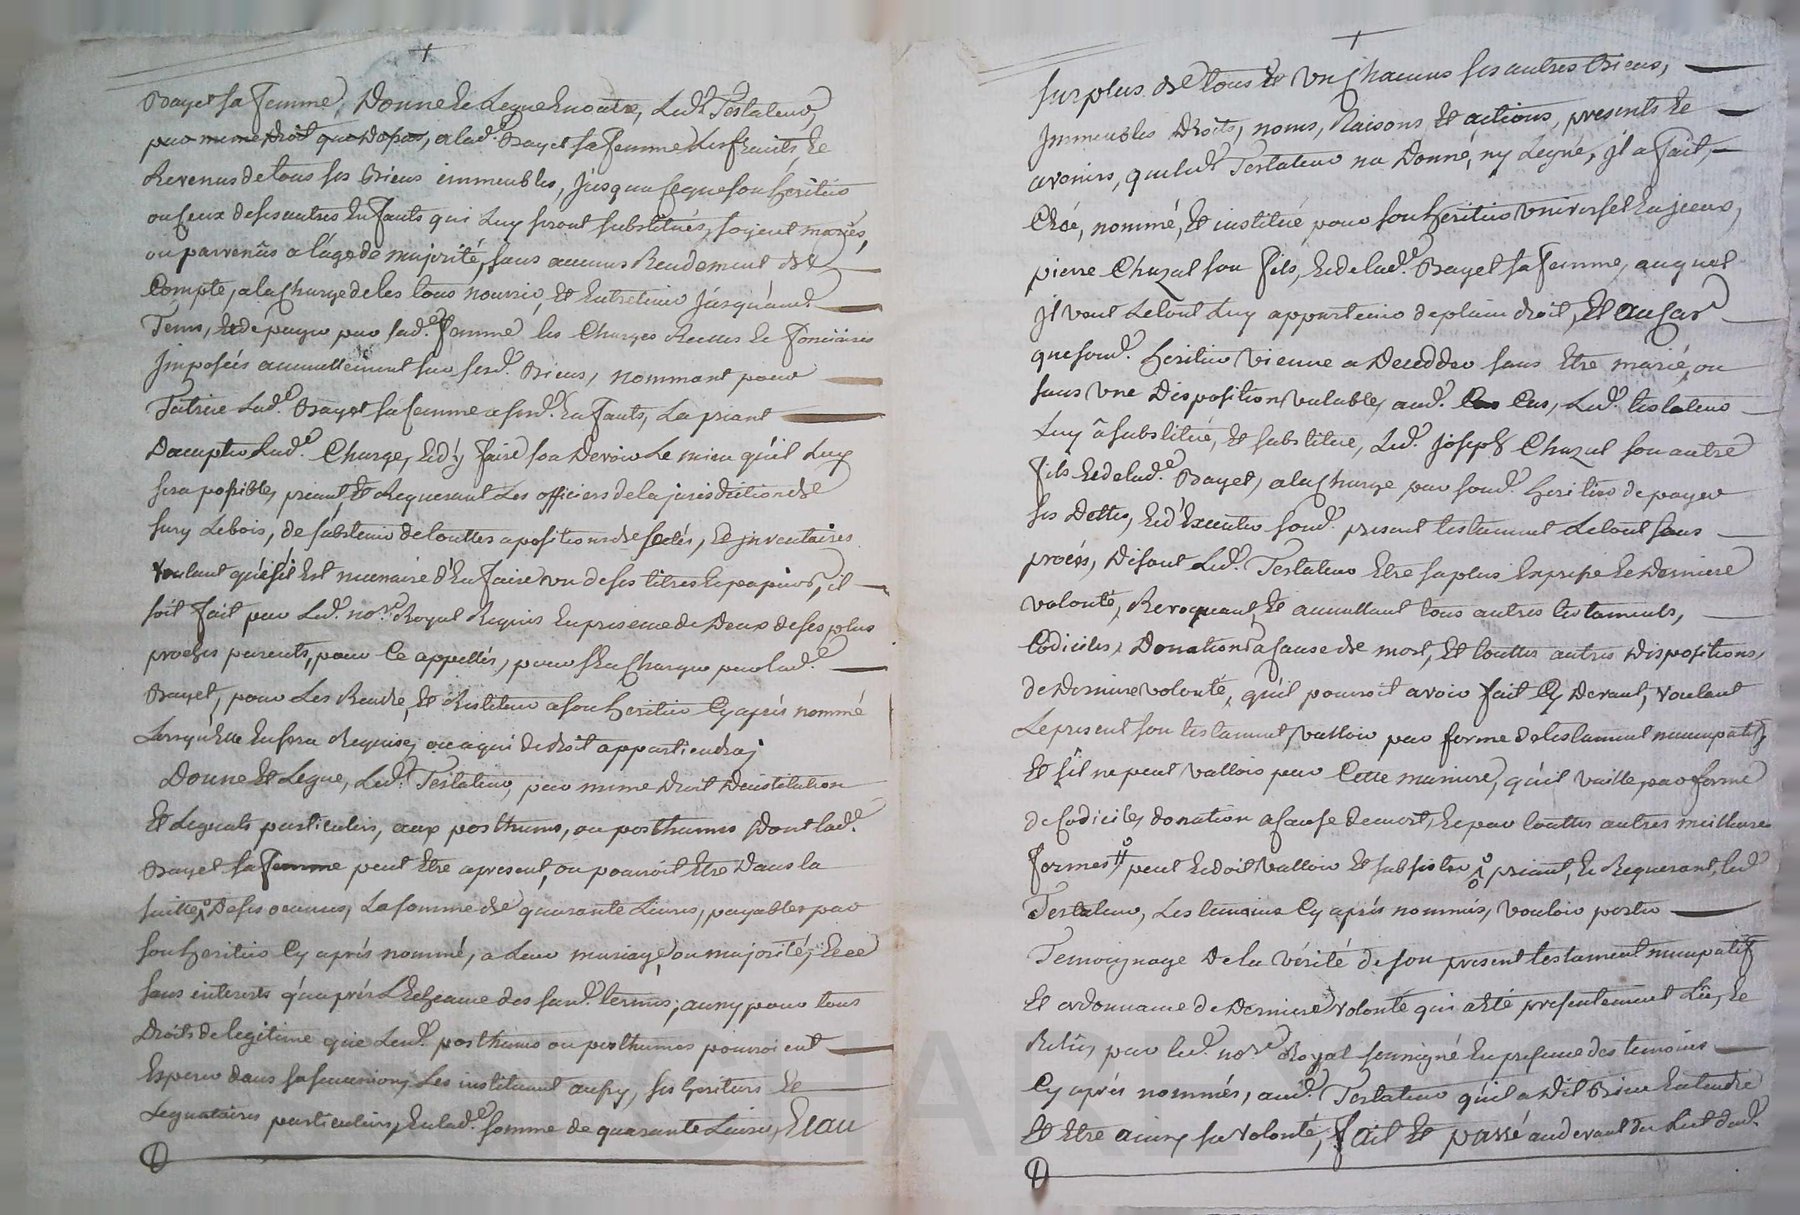 Bayet sa femme, Donne Et Legue En outre, Ledt. Testateur,
par meme droit que dessus, a lade. Bayet sa femme Les fruits Et
Revenus de tous ses Biens immeubles, jusqu'au ce que son heritier
ou Ceux de ses autres Enfants qui Luy seront substitués, soyent mariés,
ou parvenûs a l'age de majorité, sans aucuns Rendement de
Compte, a la Charge de les tous nourrir, Et Entretenir jusqu'aud.
Tems, Et de payer par sade. femme les Charges Réelles Et foncieres
Imposées annuellement sur sesd. Biens, nommant pour
Tutrice Lade. Bayet sa femme a sesd. Enfants, La priant
D'accepter Lade. Charge, Et d'y faire son Devoir Le mieu qu'il Luy
sera possible, priant, Et Requerant Les officiers de la jurisdiction de
Sury Lebois, de s'abstenir de touttes apositions de scelés, Et inventaires
voulant que s'il Est necessaire d'En faire un de ses titres Et papiers, il
soit fait par Led. nore. Royal Requis En presence de Deux de ses plus
proches parents, pour Ce appellés, pour s'En Charger par lade.
Bayet, pour Les Rendre, Et Restituer a son heritier Cy après nommé
Lorsqu'Elle En sera Requise, ou a qui de droit appartiendra;
Donne Et Legue, Led. Testateur, par meme Droit D'institution
Et Leguats particuliers, aux posthume, ou posthumes Dont lade.
Bayet sa femme peut Etre apresent, ou pourroit Etre Dans la
suitte, De ses oeuvres, La somme de quarante Livres, payables par
son heritier Cy après nommé, a Leur mariage, ou majorité, Et ce
sans interests qu'après L'Echeance des susd. termes, Et ce pour tous
Droits de legitime que Lesd. posthume ou posthumes pourroient
Esperer dans sa succession, Les instituant aussy, ses heritiers Et
Leguataires particuliers, En lade. somme de quarante Livres, Et au
surplus de tous Et Un Chacuns ses autres Biens,
Immeubles Droits, noms, Raisons Et actions, presents Et
avenirs, que led. Testateur na Donné, ny Legué, il a fait,
Créé, nommé, Et institué, pour son heritier Universel En jceux,
pierre Chazal son fils, Et de lade. Bayet sa femme, auquel
il veut Le tout Luy appartenir de plain droit, Et au Cas
que sond. heritier vienne a Deceder sans Etre marié, ou
sans Une Disposition valable, aud. Cas, Led. testateur
Luy â substitué, Et substitue, Led. joseph Chazal son autre
fils Et de lade. Bayet, a la Charge par sond. heritier de payer
ses Dettes, Et d'Executer sond. present testament Le tout sans
procès, Disant Led. Testateur Etre sa plus Expresse Et Derniere
volonté, Revoquant, Et annullant tous autres testaments,
Codiciles, Donations a Cause de mort, Et touttes autres Dispositions,
de Derniere volonté, qu'il pourroit avoir fait Cy Devant, voulant
Le present son testament, valloir par forme de testament nuncupatif,
Et s'il ne peut valloir par Cette maniere, qu'il vaille, par forme
de Codicile, donation a Cause de mort, Et par touttes autres meilleures
formes peut Et doit valloir Et subsister, priant, Et Requerant, led.
Testateur, Les temoins Cy après nommés, vouloir porter
Temoignage De la vérité de son present testament nuncupatif
Et ordonnance de Derniere volonté qui a été presentement Lû, Et
Relû, par led. nore. Royal soussigné En presence des temoins
Cy après nommés, aud. Testateur qu'il a Dit Bien Entendre
Et Etre ainsy sa volonté, fait Et passé audevant du Lict dud.